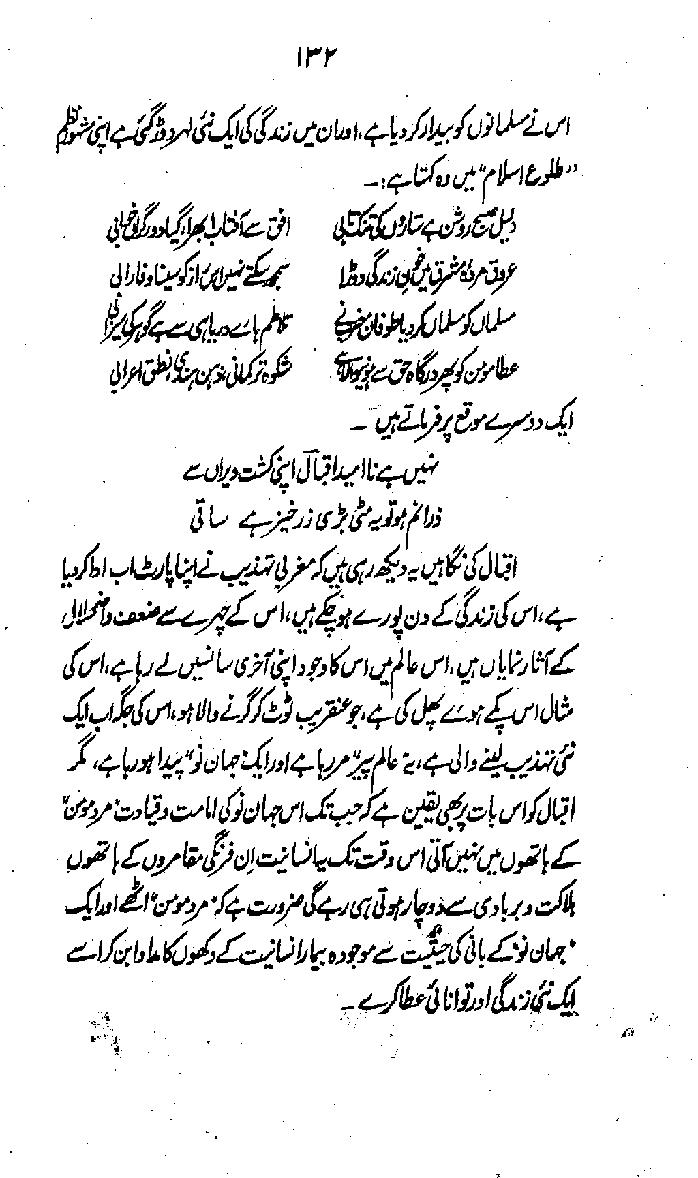 ۱۳۲
اس نے مسلمانوں کو بیدار کر دیا ہے، اور ان میں زندگی کی ایک نئی لہر دوڑ گئی ہے اپنی مشہور نظم
"طلوع اسلام" میں وہ کہتا ہے:-
دلیل صبح روشن ہے ستاروں کی تنک تابی افق سے آفتاب ابھرا، گیا دور گراں خوابی
عروق مردۂ مشرق میں خون زندگی دوڑا سمجھ سکتے نہیں اس راز کو سینا و فارابی
مسلماں کو مسلماں کر دیا طوفان مغرب نے تلاطم ہائے دریا ہی سے ہے گوہر کی سیرابی
عطا مومن کو پھر درگاہ حق سے ہونے والا ہے شکوہ ترکمانی، ذہن ہندی، نطق اعرابی
ایک دوسرے موقع پر فرماتے ہیں۔
نہیں ہے نا امید اقبالؔ اپنی کشت ویراں سے
ذرا نم ہو تو یہ مٹی بڑی زرخیز ہے ساقی
اقبال کی نگاہیں یہ دیکھ رہی ہیں کہ مغربی تہذیب نے اپنا پارٹ اب ادا کر دیا
ہے، اس کی زندگی کے دن پورے ہو چکے ہیں، اس کے چہرے سے ضعف و اضمحلال
کے آثار نمایاں ہیں، اس عالم میں اس کا وجود اپنی آخری سانسیں لے رہا ہے، اس کی
مثال اس پکے ہوئے پھل کی ہے، جو عنقریب ٹوٹ کر گرنے والا ہو، اس کی جگہ اب ایک
نئی تہذیب لینے والی ہے، یہ "عالم پیر" مر رہا ہے اور ایک "جہان نو" پیدا ہو رہا ہے، مگر
اقبال کو اس بات پر بھی یقین ہے کہ جب تک اس جہان نو کی امامت و قیادت "مرد مومن"
کے ہاتھوں میں نہیں آتی اس وقت تک یہ انسانیت ان فرنگی مقامروں کے ہاتھوں
ہلاکت و بربادی سے دوچار ہوتی ہی رہے گی ضرورت ہے کہ "مرد مومن" اٹھے اور ایک
"جہان نو" کے بانی کی حیثیت سے موجودہ بیمار انسانیت کے دکھوں کا مداوا بن کر اسے
ایک نئی زندگی اور توانائی عطا کرے۔